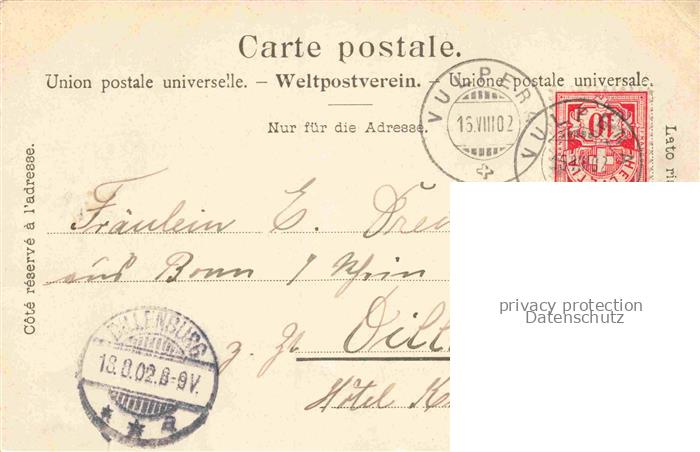 Carte postale.
Union postale universelle. – Weltpostverein. – Unione postale universale.
Nur für die Adresse.
Côté réservé à l'adresse.
Lato ris
VULPERA
15.VIII.02
VULPERA
10
HELVETIA
Fräulein E. Dre
aus Bonn / Rhein
z. Zt. Dill
Hôtel K
DILLENBURG
18.8.02.8-9V.
* * a
privacy protection
Datenschutz